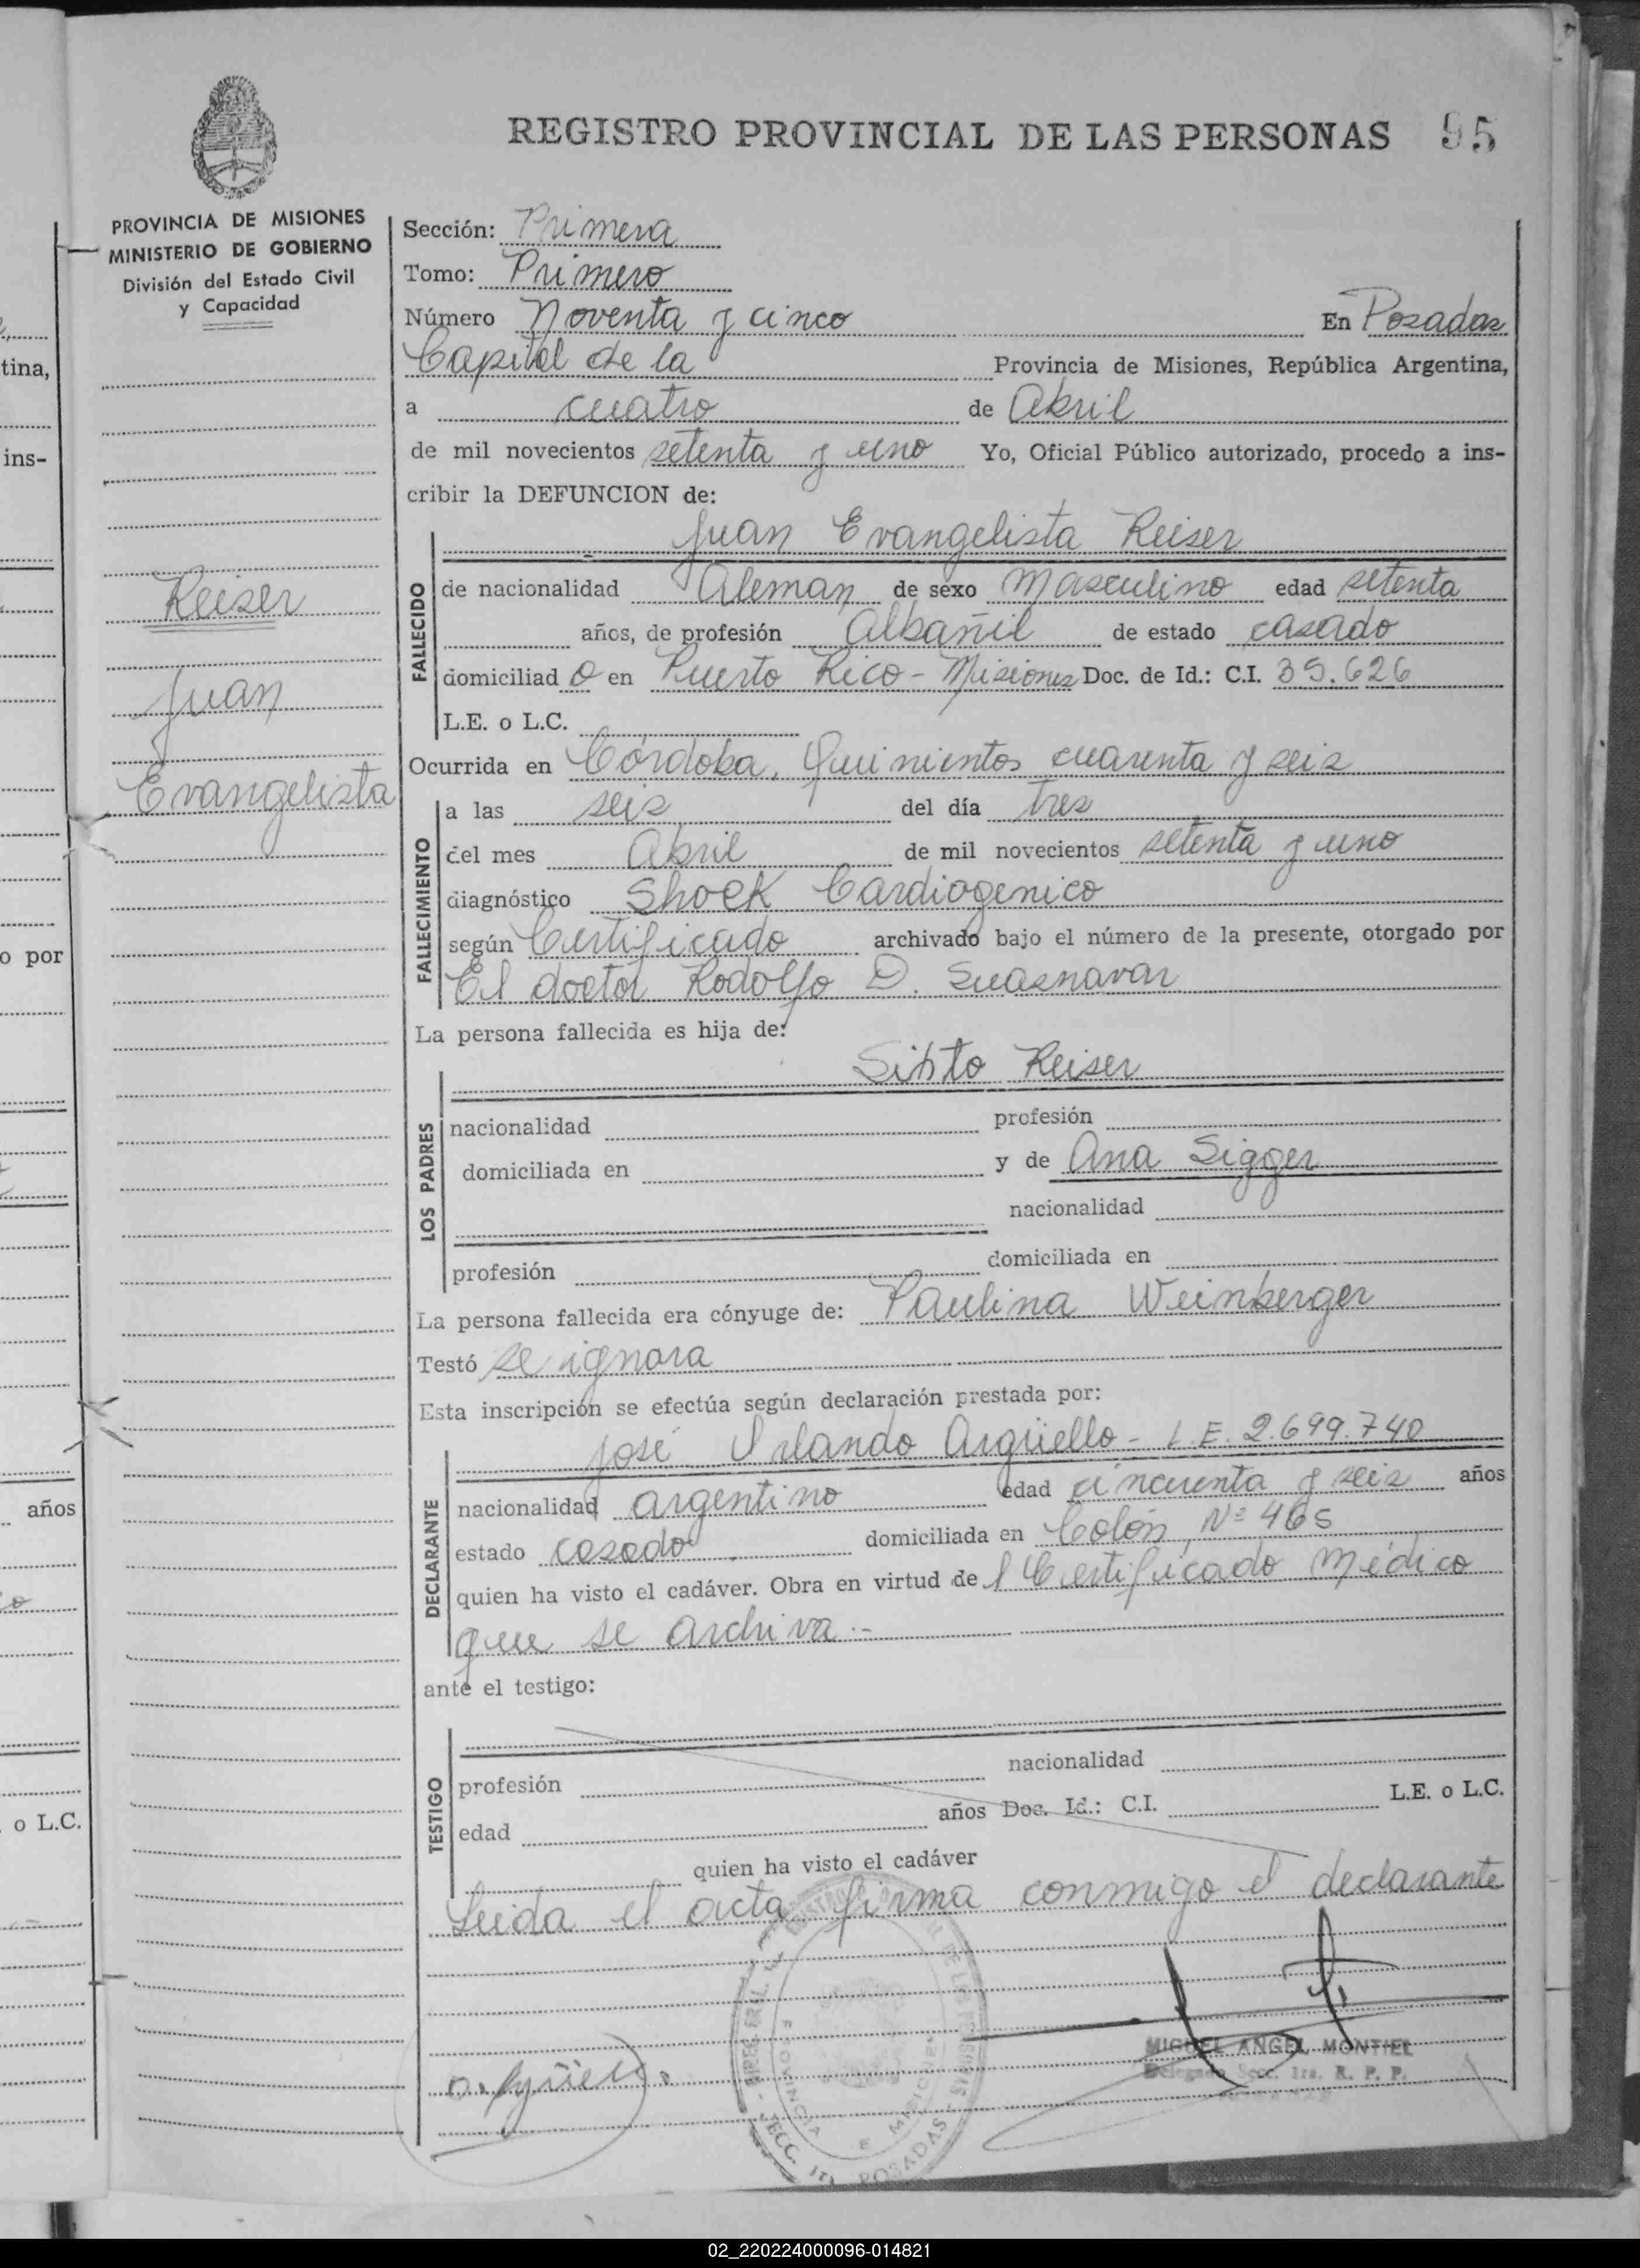 REGISTRO PROVINCIAL DE LAS PERSONAS 95
PROVINCIA DE MISIONES
MINISTERIO DE GOBIERNO
División del Estado Civil
y Capacidad
Keiser
Juan
Evangelista
Sección: Primera
Tomo: Primero
Número Noventa y cinco En Posadas
Capital de la Provincia de Misiones, República Argentina,
a cuatro de Abril
de mil novecientos setenta y uno Yo, Oficial Público autorizado, procedo a ins-
cribir la DEFUNCION de:
Juan Evangelista Keiser
FALLECIDO
de nacionalidad Aleman de sexo Masculino edad setenta
años, de profesión Albañil de estado casado
domiciliad o en Puerto Rico - Misiones Doc. de Id.: C.I. 39.626
L.E. o L.C.
Ocurrida en Córdoba, Quinientos cuarenta y seis
FALLECIMIENTO
a las seis del día tres
del mes Abril de mil novecientos setenta y uno
diagnóstico Shock Cardiogenico
según Certificado archivado bajo el número de la presente, otorgado por
El doctor Rodolfo D. Suasnavar
La persona fallecida es hija de:
Sixto Keiser
LOS PADRES
nacionalidad profesión
domiciliada en y de Ana Sigger
nacionalidad
profesión domiciliada en
La persona fallecida era cónyuge de: Paulina Weinberger
Testó se ignora
Esta inscripción se efectúa según declaración prestada por:
José Orlando Argüello - L.E. 2.699.740
DECLARANTE
nacionalidad argentino edad cincuenta y seis años
estado casado domiciliada en Colón Nº 465
quien ha visto el cadáver. Obra en virtud de l Certificado Médico
que se archiva.-
ante el testigo:
TESTIGO
nacionalidad
profesión
edad años Doc. Id.: C.I. L.E. o L.C.
quien ha visto el cadáver
Leida el acta firma conmigo el declarante
MIGUEL ANGEL MONTIEL
Delegado Secc. 1ra. R. P. P.
POSADAS
tina,
ins-
o por
años
o L.C.
02_220224000096-014821